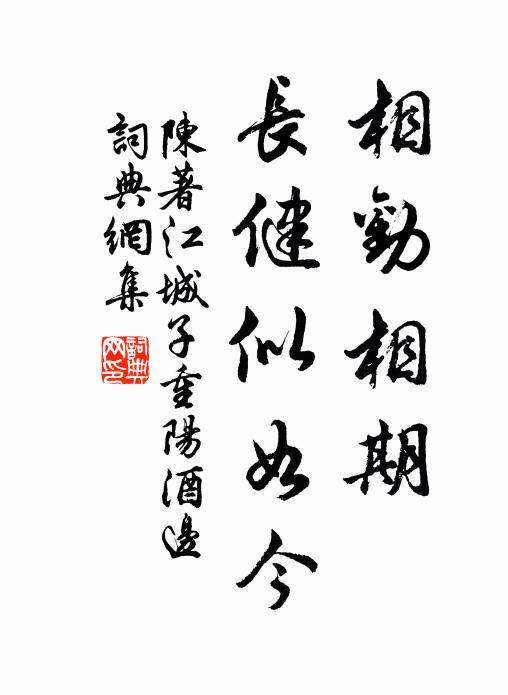 相勸相期
長健似如今
陳著江城子重陽酒邊
詞典網集
詞典網印